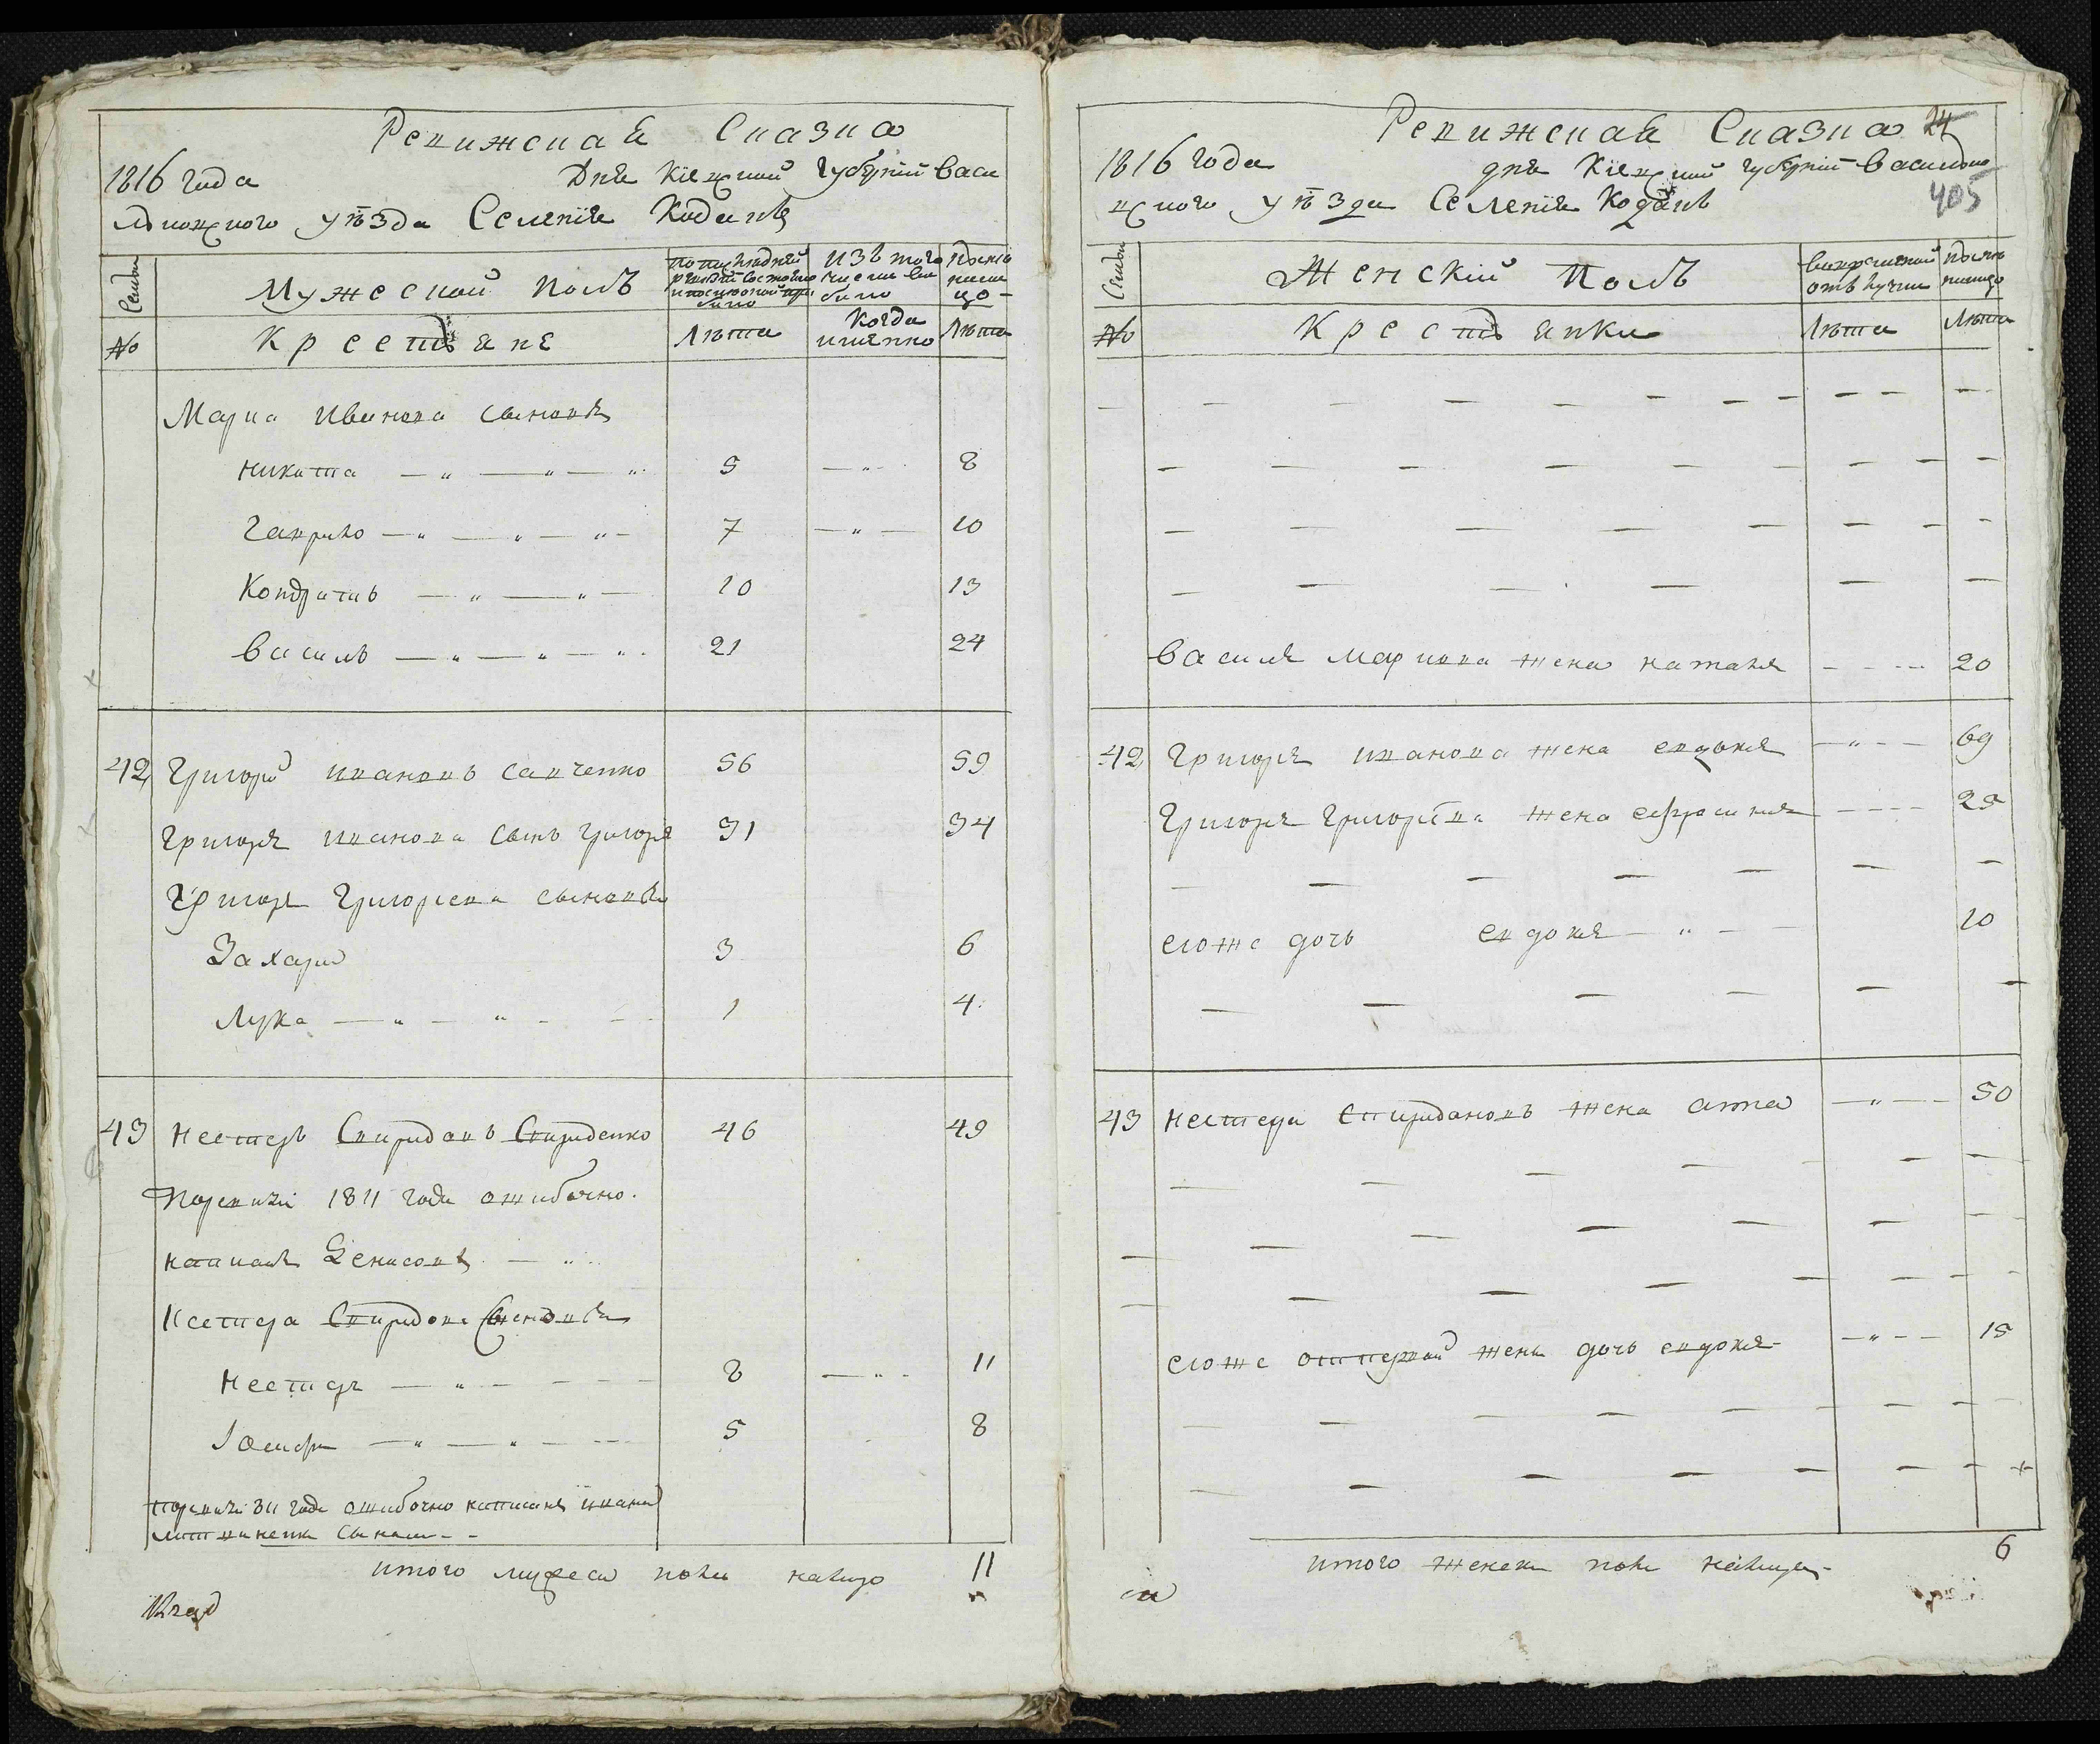 Ревижская Сказка
1816 года Дня Кіевской Губерній Васи
льковского уѣзда Селенія Кодакъ
Семьи
Мужеской полъ
по последней ревизій состояло и после оной прибыло
изъ того числа выбыло
ныне на лицо
№
Крестьяне
Лѣта
Когда именно
Лѣта
Марка Иванова сыновя
никита — „ — „ — „ 5 — „ 8
гаврило — „ — „ — „ 7 — „ — 10
Кондратъ — „ — „ — 10 13
василь — „ — „ — „ 21 24
42 Григорий иванов савченко 56 59
Григоря иванова сынъ григорй 31 34
Григоря Григориева сыновя
Захарий 3 6
Лука — „ — „ 1 4
43 нестеръ Спиридонов Спириденко 46 49
По ревизи 1811 года ошибочно
написанъ Денисовъ — „
Нестера Спиридонова Сыновя
нестеръ — „ — 8 — „ 11
Іосифъ — „ — „ — 5 8
по ревизи 811 года ошибочно написаны ивана
литвиненка сынами
итого мужеска пола налицо 11
Ревижская Сказка 24
405
1816 года дня Кіевской губерній василко
вского уѣзда Селенія Кодакъ
Семьи
Женскій Полъ
во временной отлучки
ныне на лицо
№
Крестьянки
Лѣта
Лѣта
василя маркова жена наталя — 20
42 Григоря иванова жена евдокия — „ — 69
Григоря Григориева жена ефросиния — 25
егоже дочь евдокия — „ — 10
43 нестера Спиридонова жена анна — „ — 50
егоже от первой жены дочь евдокия — „ — 15
итого женска пола налицо 6